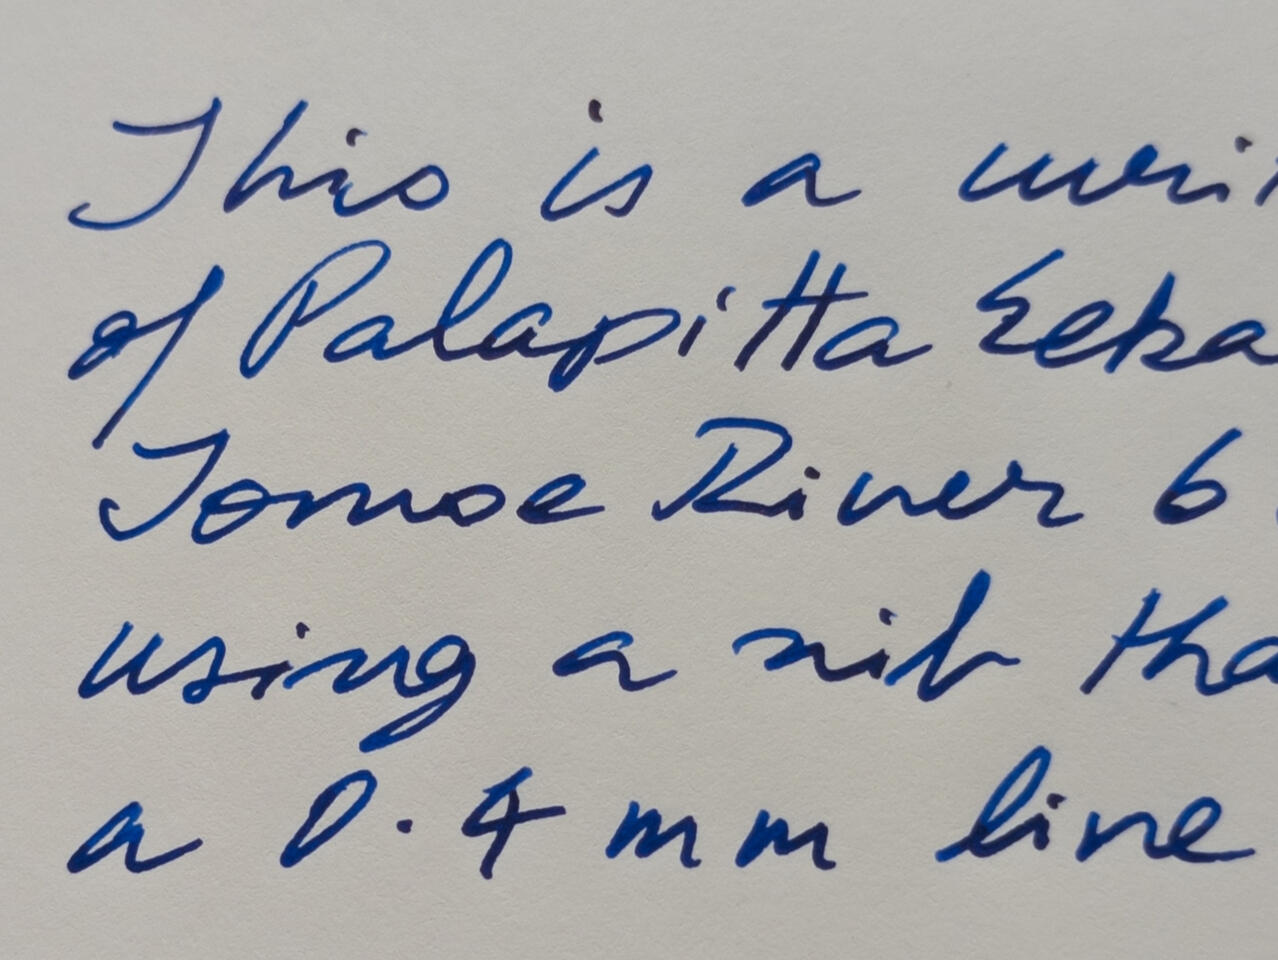 This is a writ
of Palapitta Eeka
Tomoe River 6
using a nib tha
a 0.4 mm line